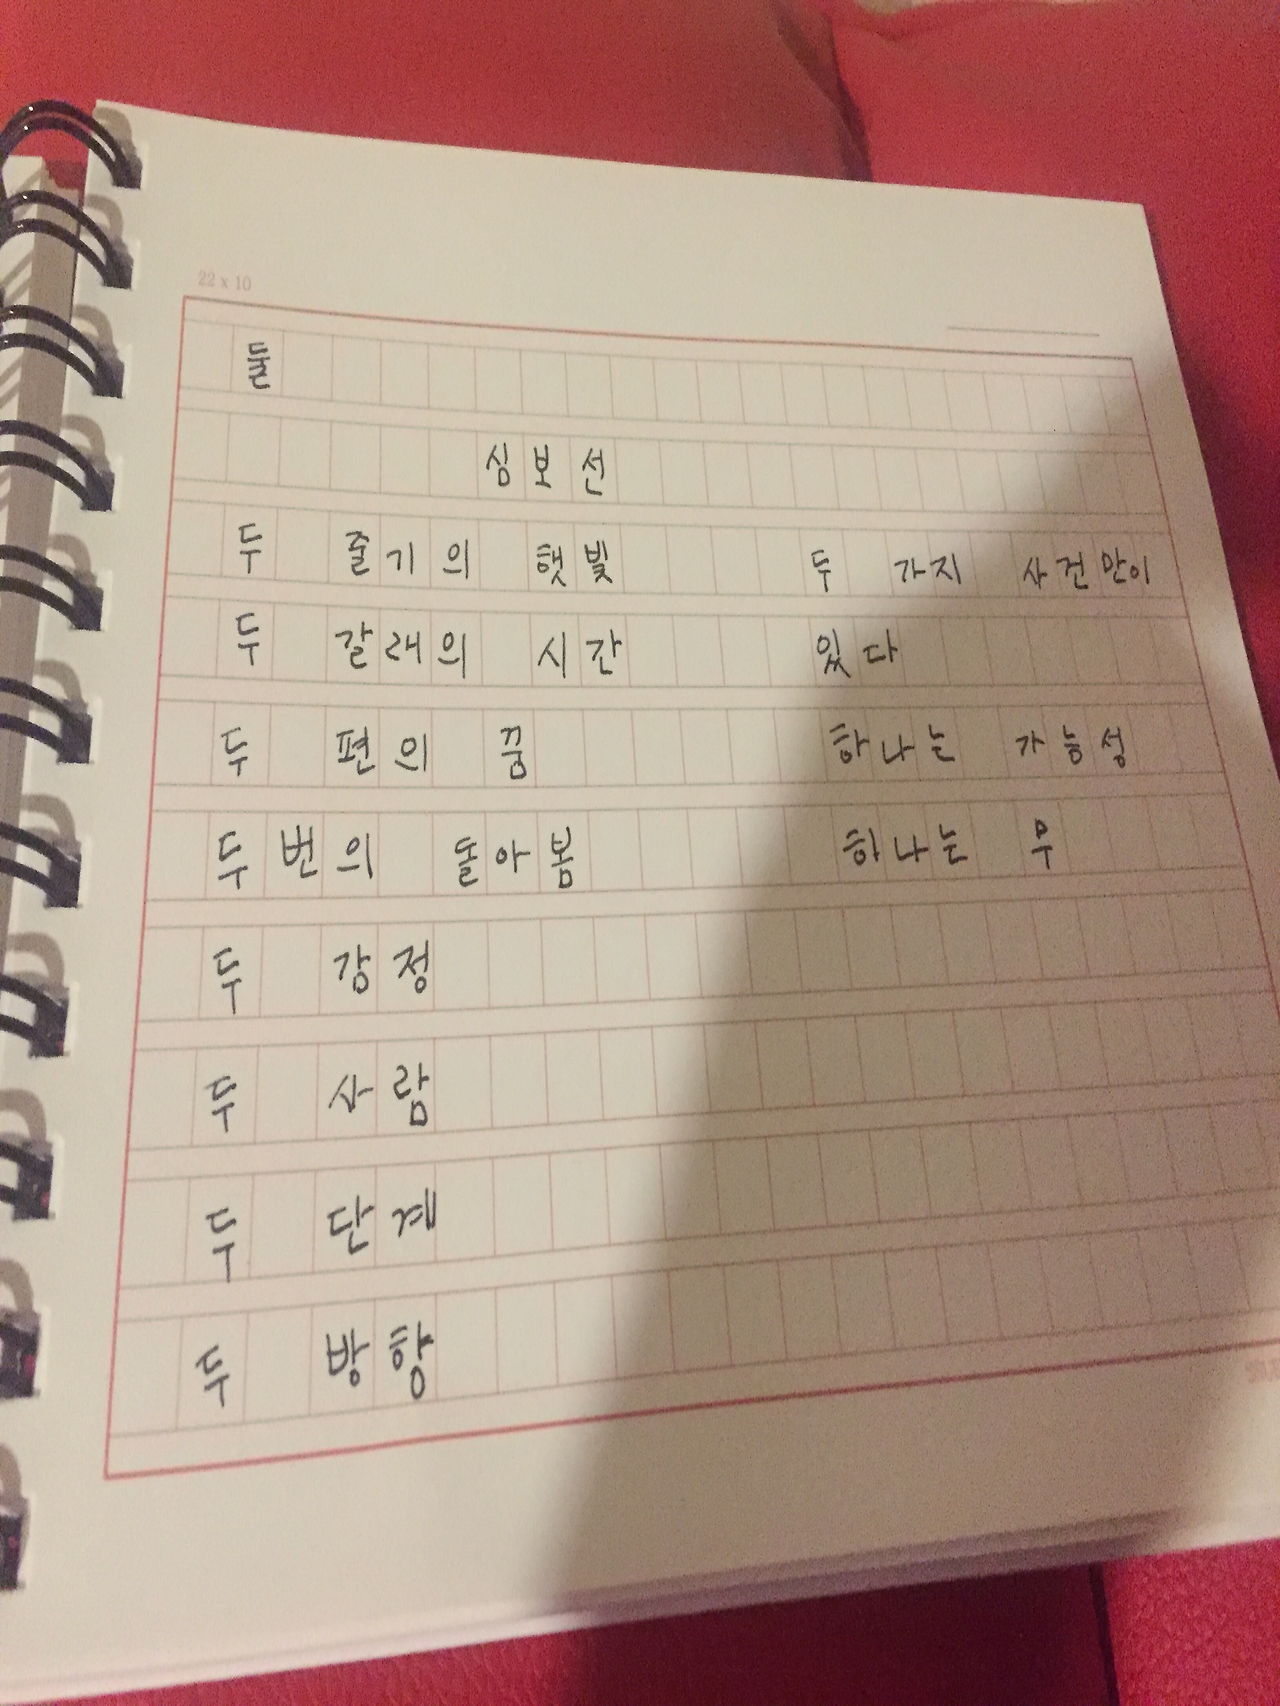 22 x 10
둘
심보선
두 줄기의 햇빛
두 갈래의 시간
두 편의 꿈
두 번의 돌아봄
두 강정
두 사람
두 단계
두 방향
두 가지 사건만이
있다
하나는 가능성
하나는 무